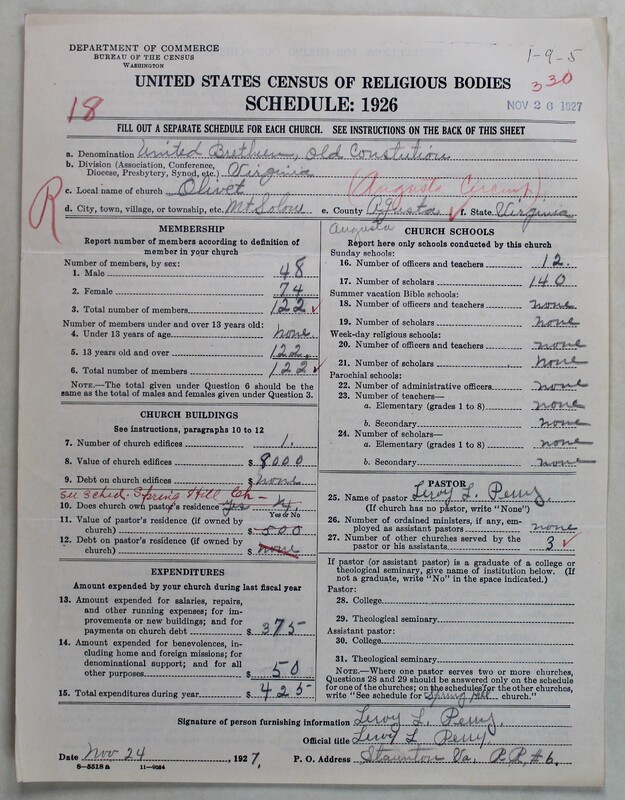 DEPARTMENT OF COMMERCE
BUREAU OF THE CENSUS
WASHINGTON
1-9-5
330
NOV 26 1927
UNITED STATES CENSUS OF RELIGIOUS BODIES
SCHEDULE: 1926
18
FILL OUT A SEPARATE SCHEDULE FOR EACH CHURCH. SEE INSTRUCTIONS ON THE BACK OF THIS SHEET
a. Denomination United Brethren, Old Constution
b. Division (Association, Conference, Diocese, Presbytery, Synod, etc.) Virginia
c. Local name of church Olivet (Augusta Circuit)
R
d. City, town, village, or township, etc. Mt Solon e. County Agusta f. State Virginia
Augusta
MEMBERSHIP
Report number of members according to definition of
member in your church
Number of members, by sex:
1. Male 48
2. Female 74
3. Total number of members 122
Number of members under and over 13 years old:
4. Under 13 years of age none
5. 13 years old and over 122
6. Total number of members 122
NOTE.—The total given under Question 6 should be
same as the total of males and females given under Question 3.
CHURCH BUILDINGS
See instructions, paragraphs 10 to 12
7. Number of church edifices 1.
8. Value of church edifices $ 8000
9. Debt on church edifices $ none
see sched. Spring Hill Ch-
10. Does church own pastor's residence yes 1/4
Yes or No
11. Value of pastor's residence (if owned by
church) $ 500
12. Debt on pastor's residence (if owned by
church) $ none
EXPENDITURES
Amount expended by your church during last fiscal year
13. Amount expended for salaries, repairs,
and other running expenses; for im-
provements or new buildings; and for
payments on church debt $ 375
14. Amount expended for benevolences, in-
cluding home and foreign missions; for
denominational support; and for all
other purposes $ 50
15. Total expenditures during year $ 425
CHURCH SCHOOLS
Report here only schools conducted by this church
Sunday schools:
16. Number of officers and teachers 12.
17. Number of scholars 140
Summer vacation Bible schools:
18. Number of officers and teachers none
19. Number of scholars none
Week-day religious schools:
20. Number of officers and teachers none
21. Number of scholars none
Parochial schools:
22. Number of administrative officers none
23. Number of teachers—
a. Elementary (grades 1 to 8) none
b. Secondary none
24. Number of scholars—
a. Elementary (grades 1 to 8) none
b. Secondary none
PASTOR
25. Name of pastor Leroy L. Perry.
(If church has no pastor, write "None")
26. Number of ordained ministers, if any, em-
ployed as assistant pastors none
27. Number of other churches served by the
pastor or his assistants 3
If pastor (or assistant pastor) is a graduate of a college or
theological seminary, give name of institution below. (If
not a graduate, write "No" in the space indicated.)
Pastor:
28. College
29. Theological seminary
Assistant pastor:
30. College
31. Theological seminary
NOTE.—Where one pastor serves two or more churches,
Questions 28 and 29 should be answered only on the schedule
for one of the churches; on the schedules for the other churches,
write "See schedule for Spring Hill church."
Signature of person furnishing information Leroy L. Perry.
Official title Leroy L Perry
Date Nov 24, 1927, P. O. Address Staunton Va. R.R. #6.
8-5518a 11-9084